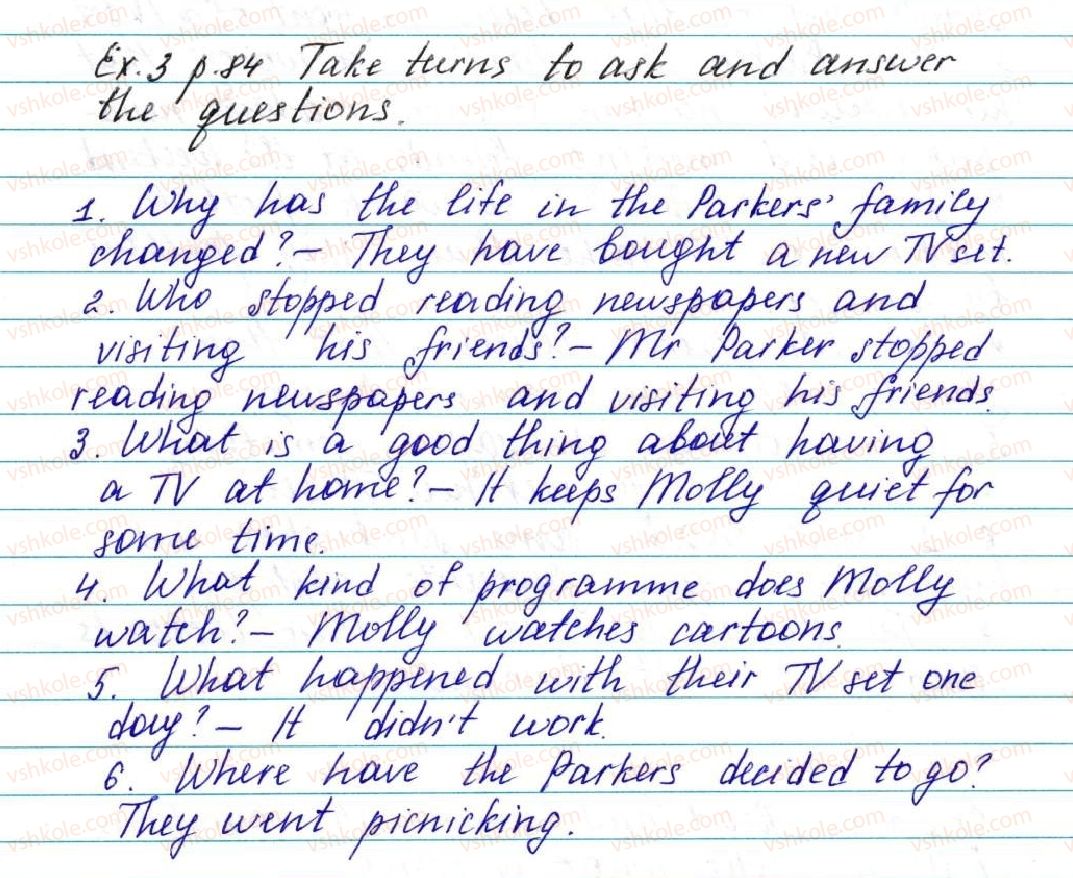 Ex.3 p.84 Take turns to ask and answer
the questions.
1. Why has the life in the Parkers' family
changed? – They have bought a new TV set.
2. Who stopped reading newspapers and
visiting his friends? – Mr Parker stopped
reading newspapers and visiting his friends.
3. What is a good thing about having
a TV at home? – It keeps Molly quiet for
some time.
4. What kind of programme does Molly
watch? – Molly watches cartoons.
5. What happened with their TV set one
day? – It didn't work.
6. Where have the Parkers decided to go?
They went picnicking.
vshkole.com